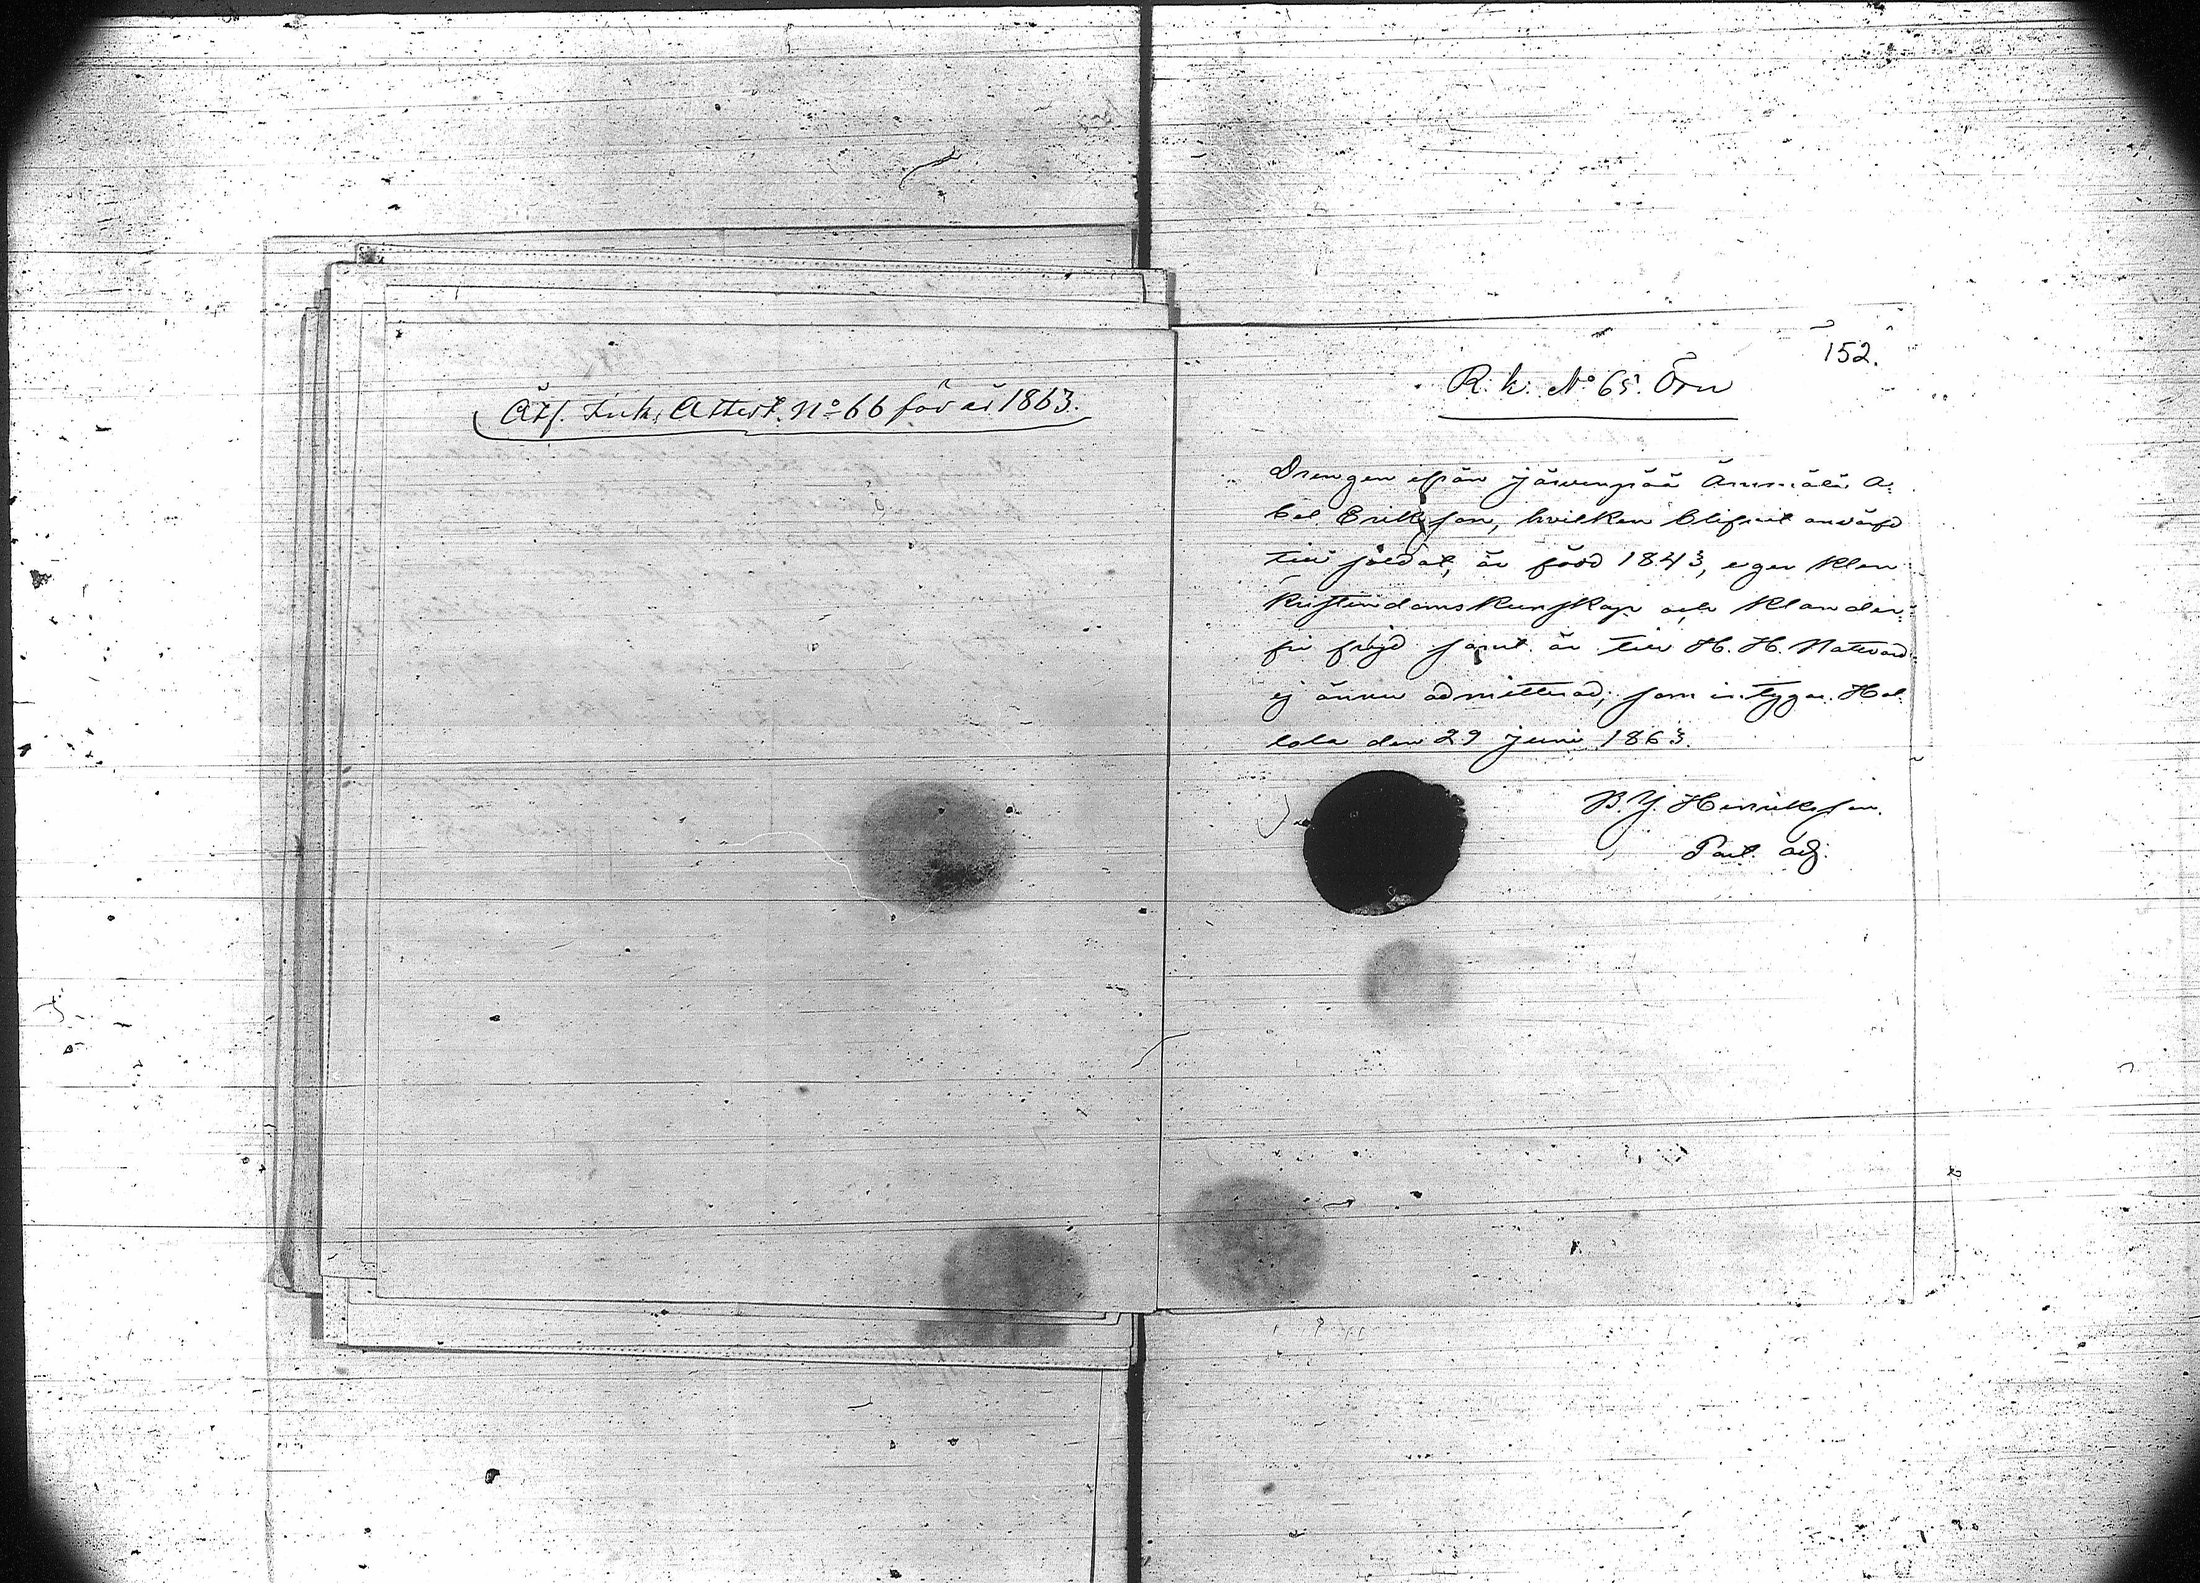 Åtf. Ink. Attest. No 66 för år 1863.
152.
R. k. No 65. Örn
Drengen ifrån Järvenpää Ämmälä A:
bel Eriksson, hvilken blifvit anvärfd
till soldat, är född 1843, eger klen
kristendomskunskap och klander:
fri frejd samt är till H. H. Nattvard
ej ännu admitterad; som intygar. Hol
lola den 29 Juni 1863.
B. J. Henriksson.
Past. adj.